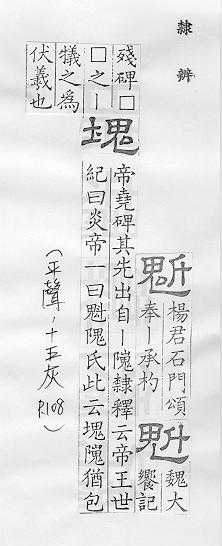 隸辨
魁
楊君石門頌
奉丨承杓
魁
魏大
饗記
殘碑□
□之丨
塊
帝堯碑其先出自丨隗隸釋云帝王世
紀曰炎帝一曰魁隗氏此云塊隗猶包
犧之為
伏羲也
(平聲,十五灰 P.108)